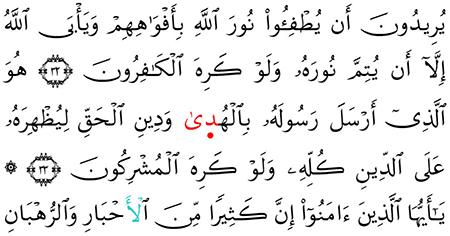 يُرِيدُونَ أَن يُطْفِـُٔوا۟ نُورَ ٱللَّهِ بِأَفْوَٰهِهِمْ وَيَأْبَى ٱللَّهُ
إِلَّآ أَن يُتِمَّ نُورَهُۥ وَلَوْ كَرِهَ ٱلْكَٰفِرُونَ ۝٣٢ هُوَ
ٱلَّذِىٓ أَرْسَلَ رَسُولَهُۥ بِٱلْهُدَىٰ وَدِينِ ٱلْحَقِّ لِيُظْهِرَهُۥ
عَلَى ٱلدِّينِ كُلِّهِۦ وَلَوْ كَرِهَ ٱلْمُشْرِكُونَ ۝٣٣ ۞
يَٰٓأَيُّهَا ٱلَّذِينَ ءَامَنُوٓا۟ إِنَّ كَثِيرًا مِّنَ ٱلْأَحْبَارِ وَٱلرُّهْبَانِ